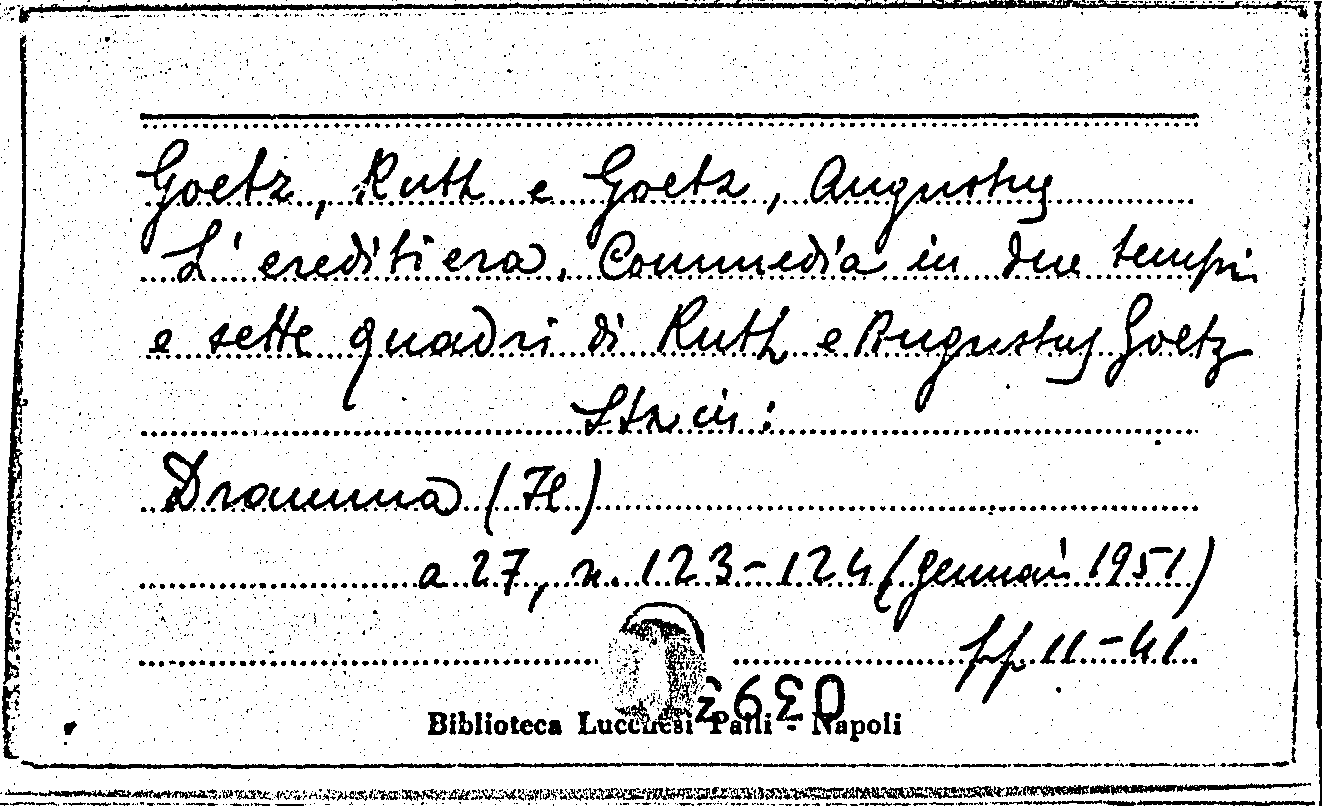 Goetz, Ruth e Goetz, Augustus
L'ereditiera. Commedia in due tempi
e sette quadri di Ruth e Augustus Goetz
Sta in:
Dramma (Il)
a 27, n. 123-124 (gennaio 1951)
pp 11-41
Biblioteca Lucchesi Palli - Napoli